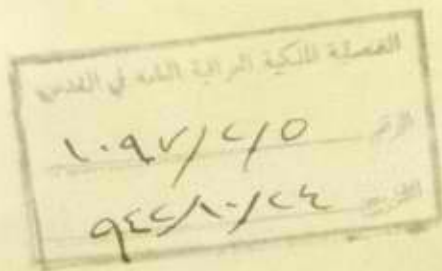 القنصلية الملكية العراقية العامة في القدس
الرقم ١٠٩٧/٢/٥
التاريخ ٩٤٢/١٠/٢٤